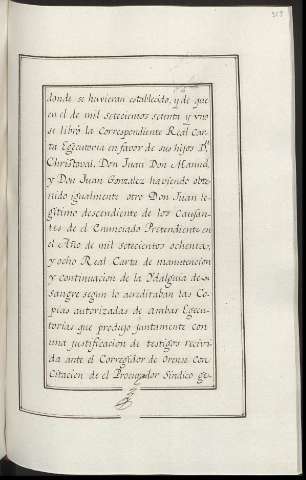 donde se huvieran establecido, y de que
en el de mil setecientos setenta y uno
se libró la Correspondiente Real Car
ta Egecutoria en favor de sus hijos Dⁿ
Christoval, Don Juan Don Manuel,
y Don Juan Gonzalez haviendo obte
nido igualmente otro Don Juan le
gitimo descendiente de los Causan
tes de el Enunciado Pretendiente en
el Año de mil setecientos ochenta,
y ocho Real Carta de manutencion
y continuacion de la Ydalguia de
sangre segun lo acreditaban las Co
pias autorizadas de ambas Egecu
torias que produjo juntamente con
una justificacion de testigos recivi
da ante el Corregidor de Orense con
Citacion de el Procurador Sindico ge-